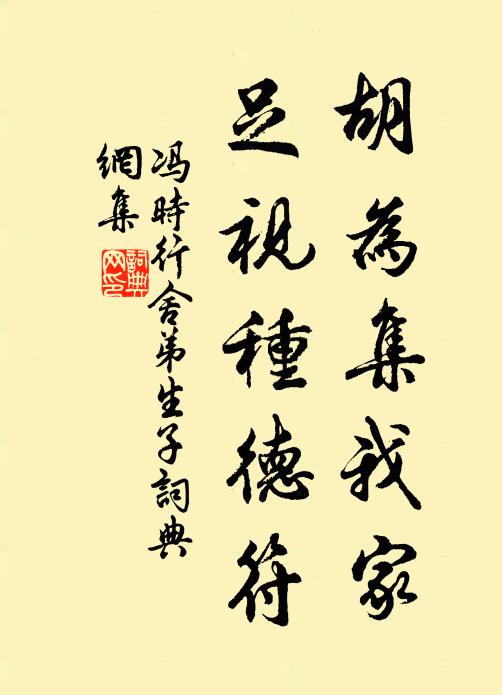 胡為集我家
足視種德符
冯時行舍弟生子詞典
網集
詞典
网印